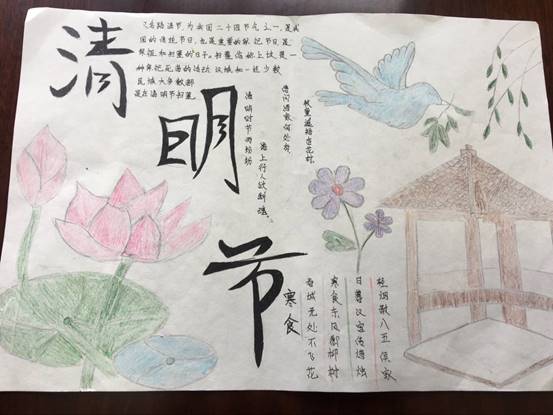 清
明
节
又名踏清节,为我国二十四节气之一,是我
国的传统节日,也是重要的祭祀节日是
祭祖和扫墓的日子。扫墓,俗称上坟,是一
种祭祀死者的活动,汉族和一些少数
民族大多数都
是在清明节扫墓
清明时节雨纷纷
路上行人欲断魂。
借问酒家何处有,
牧童遥指杏花村。
寒食
春城无处不飞花
寒食东风御柳树
日暮汉宫传蜡烛
轻烟散八五侯家